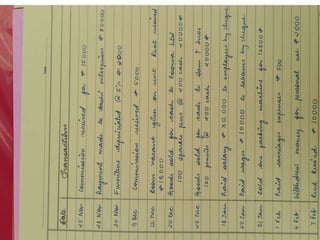 Date Transactions
25 Nov Commission received for ₹ 15000
28 Nov Payment made to enterprises ₹ 50000
30 Nov Furniture depreciated @ 5% ₹ 2000
9 Dec Commission received ₹ 5000
12 Dec Room vacant given on rent. Rent received
₹ 15000
20 Dec Goods sold for cash to Ltd
100 pens @ ₹ 200 each 20000 ₹
25 Dec Goods sold for cash to Sam
100 @ ₹ 400 each 40000 ₹
15 Jan Paid salary ₹ 30,000 to employees by cheque
25 Jan Paid wages ₹ 10000 to labours by cheque
31 Jan Sold one packing machine for 12500 ₹
1 Feb Paid carriage expenses ₹ 500
4 Feb Withdrew money for personal use ₹ 2000
7 Feb Rent Received ₹ 10000